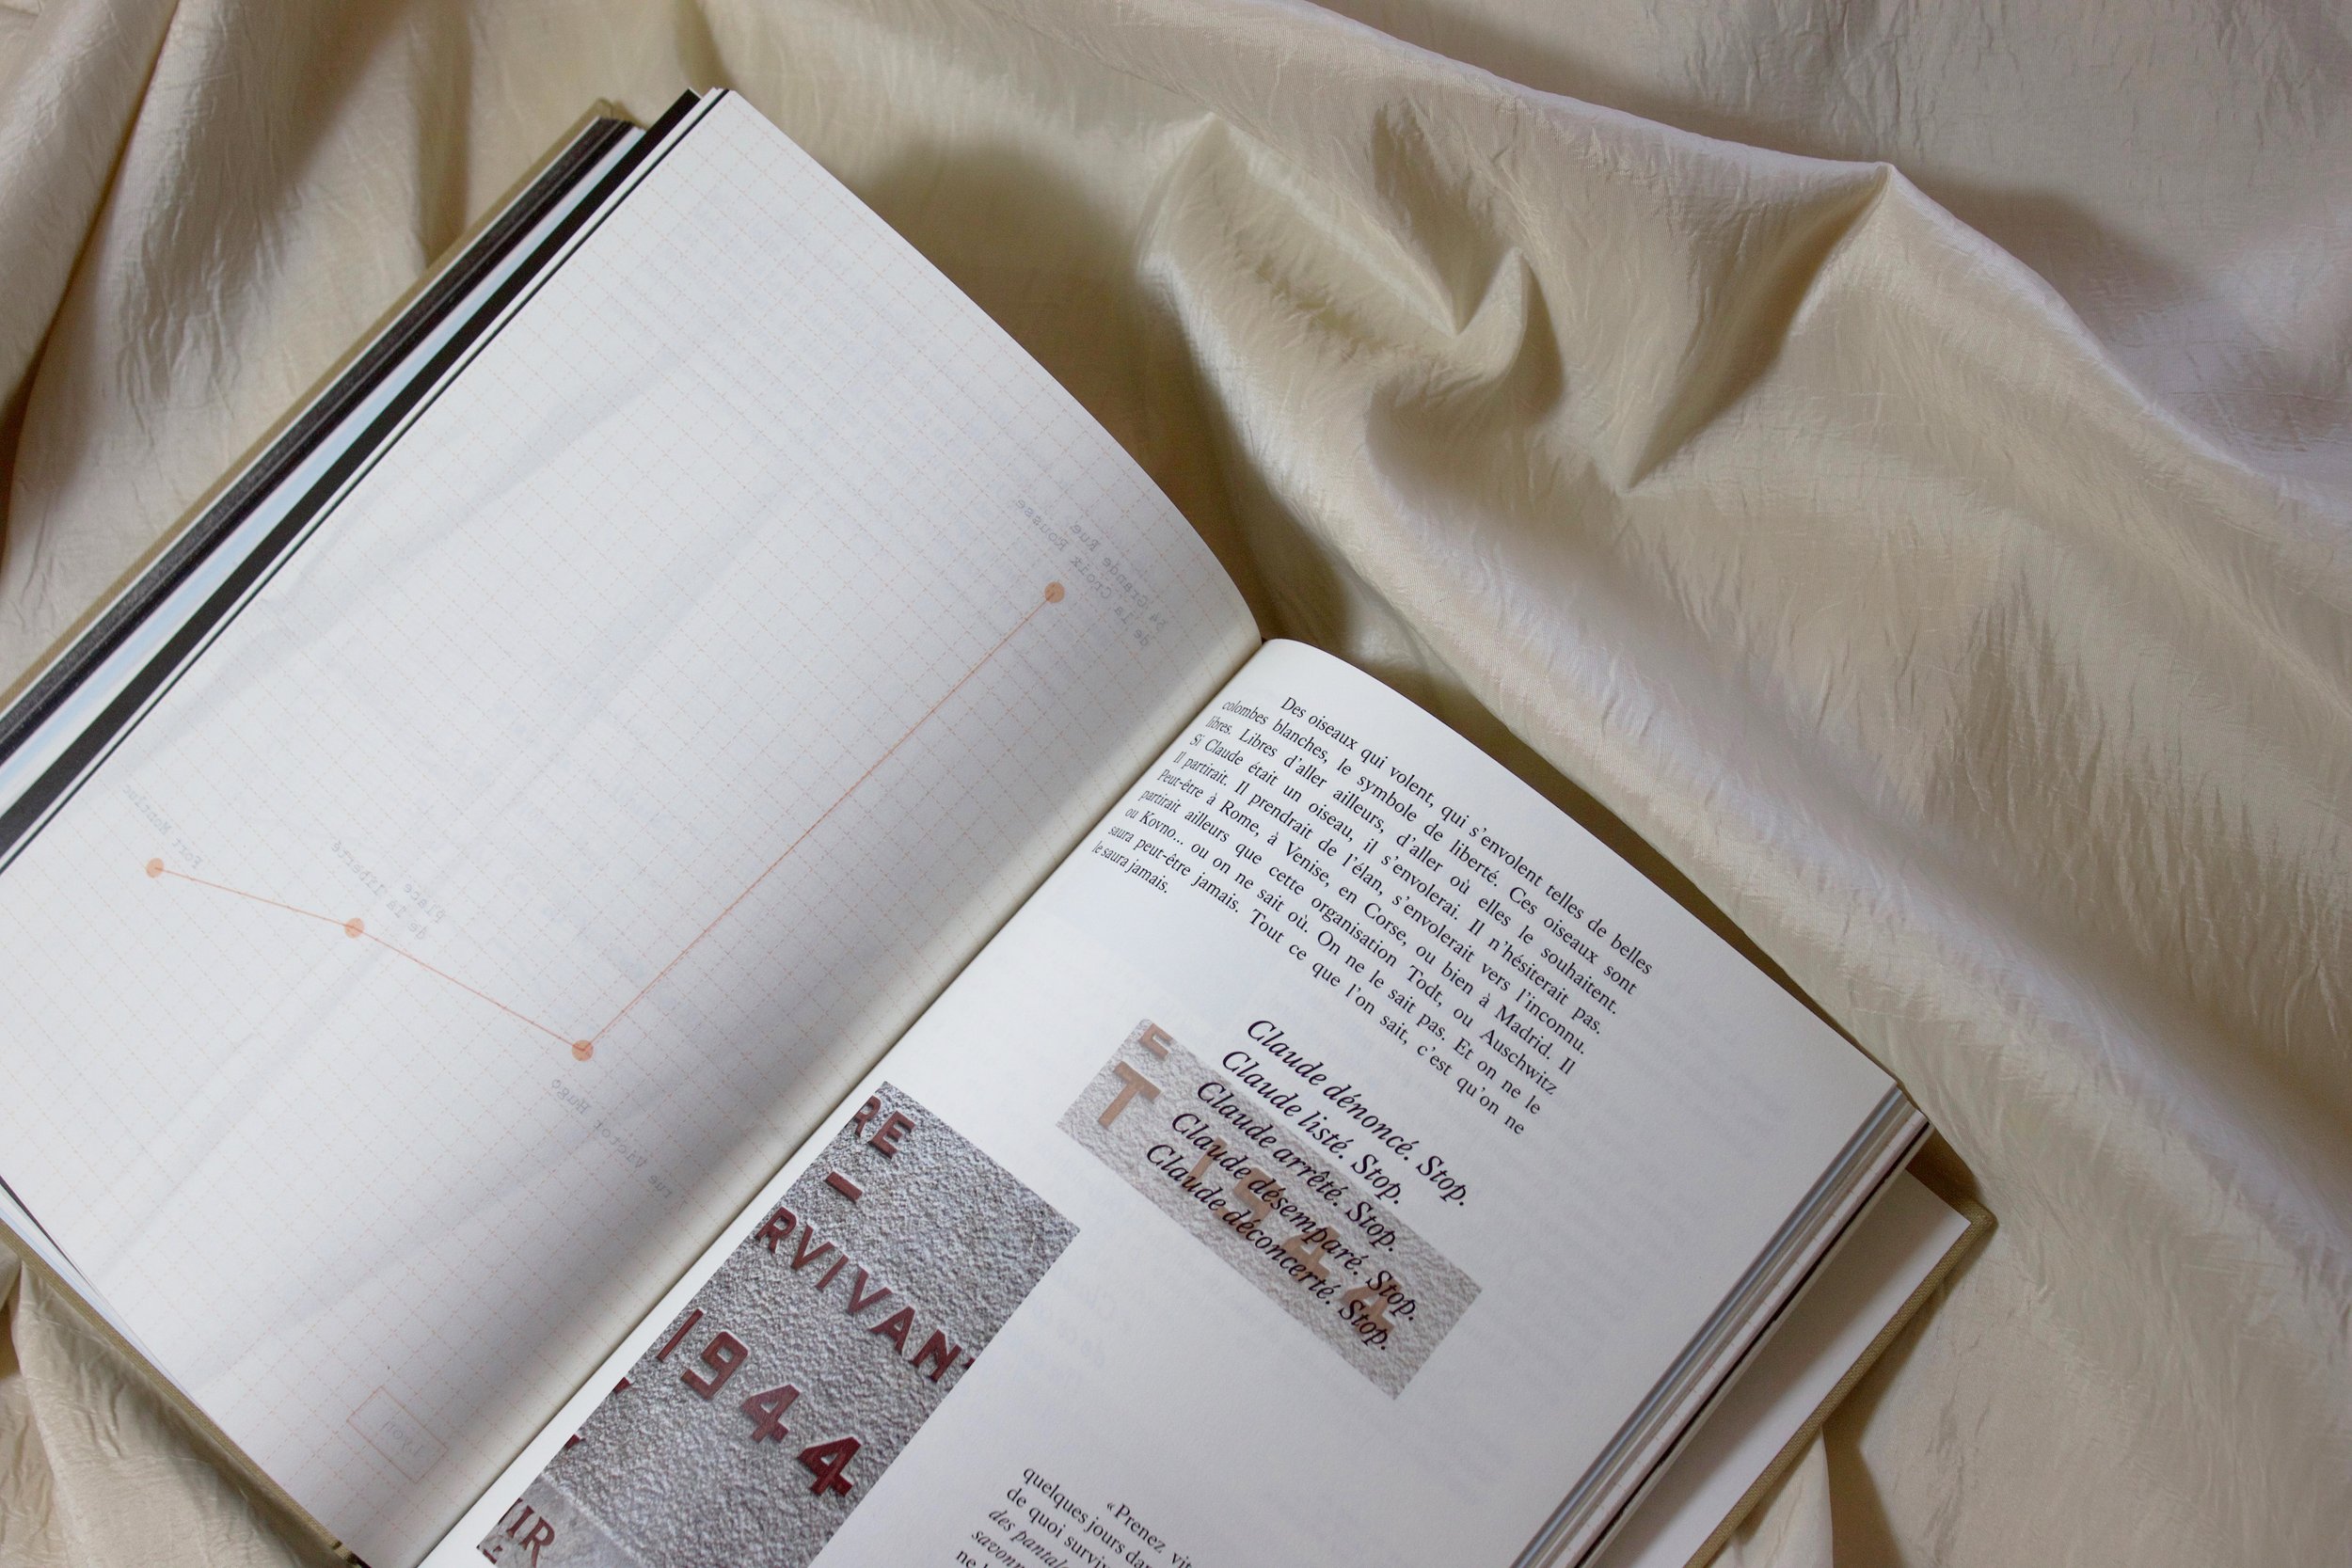 14 Grande Rue
de la Croix
Rousse
Fort Montluc
place
de la liberté
rue Victor Hugo
Lyon
Des oiseaux qui volent, qui s'envolent telles de belles
colombes blanches, le symbole de liberté. Ces oiseaux sont
libres. Libres d'aller ailleurs, d'aller où elles le souhaitent.
Si Claude était un oiseau, il s'envolerai. Il n'hésiterait pas.
Il partirait. Il prendrait de l'élan, s'envolerait vers l'inconnu.
Peut-être à Rome, à Venise, en Corse, ou bien à Madrid. Il
partirait ailleurs que cette organisation Todt, ou Auschwitz
ou Kovno... ou on ne sait où. On ne le sait pas. Et on ne le
saura peut-être jamais. Tout ce que l'on sait, c'est qu'on ne
le saura jamais.
E
T
Claude dénoncé. Stop.
Claude listé. Stop.
Claude arrêté. Stop.
Claude désemparé. Stop.
Claude déconcerté. Stop.
RE
–
RVIVAN
1944
IR
«Prenez vit
quelques jours dan
de quoi surviv
des pantal
savonn
ne l